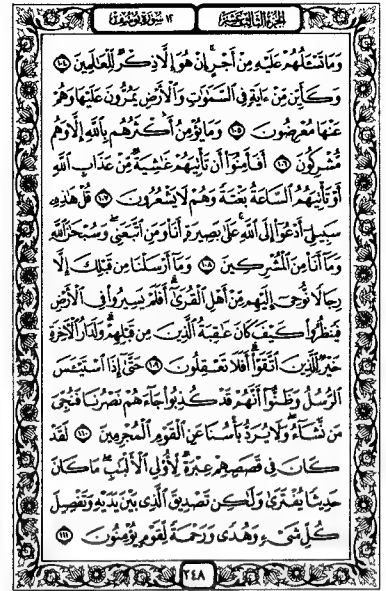 الجزء الثالث عشر
١٢ سورة يوسف
وَمَا تَسْـَٔلُهُمْ عَلَيْهِ مِنْ أَجْرٍ إِنْ هُوَ إِلَّا ذِكْرٌ لِّلْعَٰلَمِينَ ١٠٤
وَكَأَيِّن مِّنْ ءَايَةٍ فِى ٱلسَّمَٰوَٰتِ وَٱلْأَرْضِ يَمُرُّونَ عَلَيْهَا وَهُمْ
عَنْهَا مُعْرِضُونَ ١٠٥ وَمَا يُؤْمِنُ أَكْثَرُهُم بِٱللَّهِ إِلَّا وَهُم
مُّشْرِكُونَ ١٠٦ أَفَأَمِنُوٓا۟ أَن تَأْتِيَهُمْ غَٰشِيَةٌ مِّنْ عَذَابِ ٱللَّهِ
أَوْ تَأْتِيَهُمُ ٱلسَّاعَةُ بَغْتَةً وَهُمْ لَا يَشْعُرُونَ ١٠٧ قُلْ هَٰذِهِۦ
سَبِيلِىٓ أَدْعُوٓا۟ إِلَى ٱللَّهِ ۚ عَلَىٰ بَصِيرَةٍ أَنَا۠ وَمَنِ ٱتَّبَعَنِى ۖ وَسُبْحَٰنَ ٱللَّهِ
وَمَآ أَنَا۠ مِنَ ٱلْمُشْرِكِينَ ١٠٨ وَمَآ أَرْسَلْنَا مِن قَبْلِكَ إِلَّا
رِجَالًا نُّوحِىٓ إِلَيْهِم مِّنْ أَهْلِ ٱلْقُرَىٰٓ ۗ أَفَلَمْ يَسِيرُوا۟ فِى ٱلْأَرْضِ
فَيَنظُرُوا۟ كَيْفَ كَانَ عَٰقِبَةُ ٱلَّذِينَ مِن قَبْلِهِمْ ۗ وَلَدَارُ ٱلْءَاخِرَةِ
خَيْرٌ لِّلَّذِينَ ٱتَّقَوْا۟ ۗ أَفَلَا تَعْقِلُونَ ١٠٩ حَتَّىٰٓ إِذَا ٱسْتَيْـَٔسَ
ٱلرُّسُلُ وَظَنُّوٓا۟ أَنَّهُمْ قَدْ كُذِبُوا۟ جَآءَهُمْ نَصْرُنَا فَنُجِّىَ
مَن نَّشَآءُ ۖ وَلَا يُرَدُّ بَأْسُنَا عَنِ ٱلْقَوْمِ ٱلْمُجْرِمِينَ ١١٠ لَقَدْ
كَانَ فِى قَصَصِهِمْ عِبْرَةٌ لِّأُو۟لِى ٱلْأَلْبَٰبِ ۗ مَا كَانَ
حَدِيثًا يُفْتَرَىٰ وَلَٰكِن تَصْدِيقَ ٱلَّذِى بَيْنَ يَدَيْهِ وَتَفْصِيلَ
كُلِّ شَىْءٍ وَهُدًى وَرَحْمَةً لِّقَوْمٍ يُؤْمِنُونَ ١١١
٢٤٨